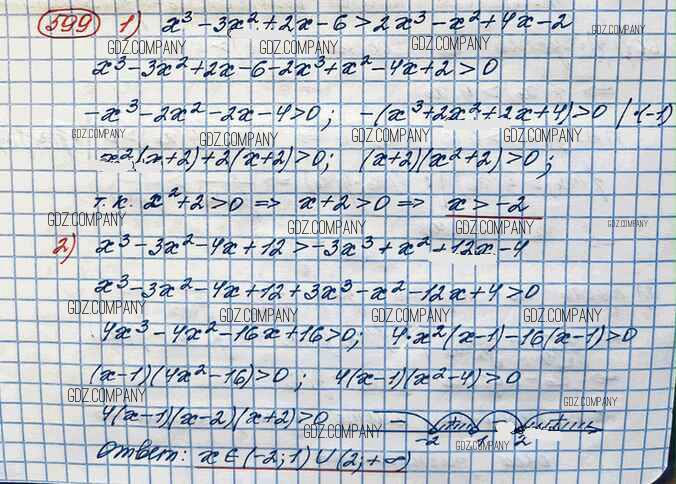 599 1) x³ - 3x² + 2x - 6 > 2x³ - x² + 4x - 2
GDZ.COMPANY GDZ.COMPANY GDZ.COMPANY GDZ.COMPANY
x³ - 3x² + 2x - 6 - 2x³ + x² - 4x + 2 > 0
-x³ - 2x² - 2x - 4 > 0; -(x³ + 2x² + 2x + 4) > 0 | ·(-1)
GDZ.COMPANY GDZ.COMPANY GDZ.COMPANY GDZ.COMPANY
x²(x+2) + 2(x+2) > 0; (x+2)(x²+2) > 0;
т.к. x² + 2 > 0 ⇒ x + 2 > 0 ⇒ x > -2
GDZ.COMPANY GDZ.COMPANY GDZ.COMPANY GDZ.COMPANY
2) x³ - 3x² - 4x + 12 > -3x³ + x² + 12x - 4
x³ - 3x² - 4x + 12 + 3x³ - x² - 12x + 4 > 0
GDZ.COMPANY GDZ.COMPANY GDZ.COMPANY GDZ.COMPANY
4x³ - 4x² - 16x + 16 > 0; 4·x²(x-1) - 16(x-1) > 0
(x-1)(4x² - 16) > 0; 4(x-1)(x² - 4) > 0
GDZ.COMPANY GDZ.COMPANY
4(x-1)(x-2)(x+2) > 0 - + - +
-2 1 2
GDZ.COMPANY GDZ.COMPANY
Ответ: x ∈ (-2; 1) ∪ (2; +∞)